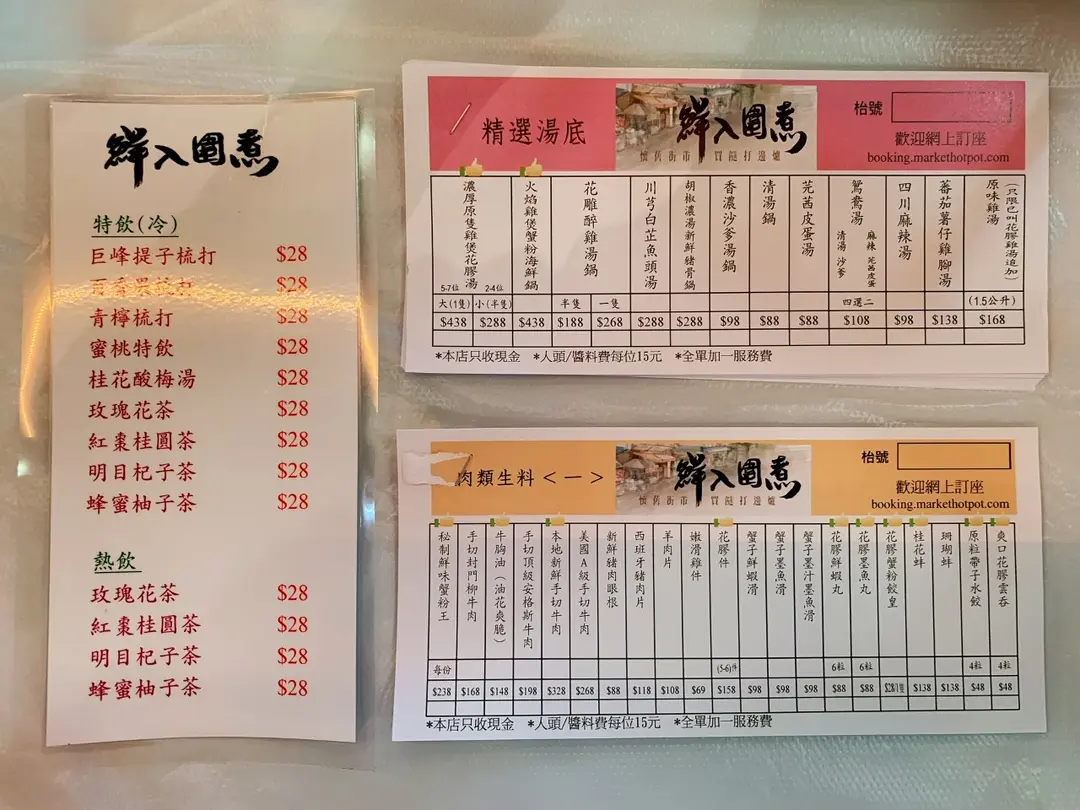 鮮入圍煮
特飲(冷)
巨峰提子梳打 $28
百香果梳打 $28
青檸梳打 $28
蜜桃特飲 $28
桂花酸梅湯 $28
玫瑰花茶 $28
紅棗桂圓茶 $28
明目杞子茶 $28
蜂蜜柚子茶 $28
熱飲
玫瑰花茶 $28
紅棗桂圓茶 $28
明目杞子茶 $28
蜂蜜柚子茶 $28
精選湯底
鮮入圍煮
懷舊街市 買餸打邊爐
枱號
歡迎網上訂座
booking.markethotpot.com
濃厚原隻雞煲花膠湯 5-7位 2-4位 大(1隻) 小(半隻) $438 $288
火焰雞煲蟹粉海鮮鍋 $438
花雕醉雞湯鍋 半隻 一隻 $188 $268
川芎白芷魚頭湯 $288
胡椒濃湯新鮮豬骨鍋 $288
香濃沙爹湯鍋 $98
清湯鍋 $88
芫茜皮蛋湯 $88
鴛鴦湯 麻辣 芫茜皮蛋 清湯 沙爹 四選二 $108
四川麻辣湯 $98
蕃茄薯仔雞腳湯 $138
原味雞湯 (只限已叫花膠雞湯追加) (1.5公升) $168
*本店只收現金 *人頭/醬料費每位15元 *全單加一服務費
肉類生料<一>
鮮入圍煮
懷舊街市 買餸打邊爐
枱號
歡迎網上訂座
booking.markethotpot.com
秘制鮮味蟹粉王 每份 $238
手切封門柳牛肉 $168
牛胸油(油花爽脆) $148
手切頂級安格斯牛肉 $198
本地新鮮手切牛肉 $328
美國A級手切牛肉 $268
新鮮豬肉眼根 $88
西班牙豬肉片 $118
羊肉片 $108
嫩滑雞件 $69
花膠件 (5-6)件 $158
蟹子鮮蝦滑 $98
蟹子墨魚滑 $98
蟹子墨汁墨魚滑 $98
花膠鮮蝦丸 6粒 $88
花膠墨魚丸 6粒 $88
花膠蟹粉餃皇 $28/1隻
桂花蚌 $138
珊瑚蚌 $138
原粒帶子水餃 4粒 $48
爽口花膠雲吞 4粒 $48
*本店只收現金 *人頭/醬料費每位15元 *全單加一服務費